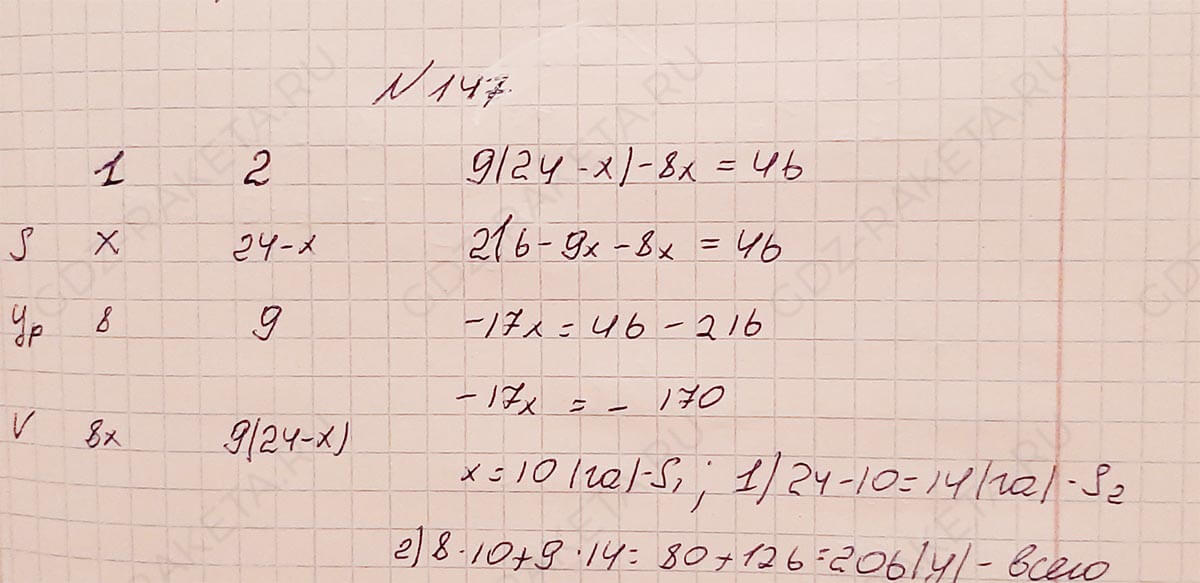 N 147
1 2 9(24-x)-8x = 46
S x 24-x 216-9x-8x = 46
Ур 8 9 -17x = 46-216
-17x = - 170
V 8x 9(24-x)
x=10 (га)-S₁; 1) 24-10=14(га)-S₂
2) 8·10+9·14= 80+126=206(ц)- всего
GDZ-RAKETA.RU